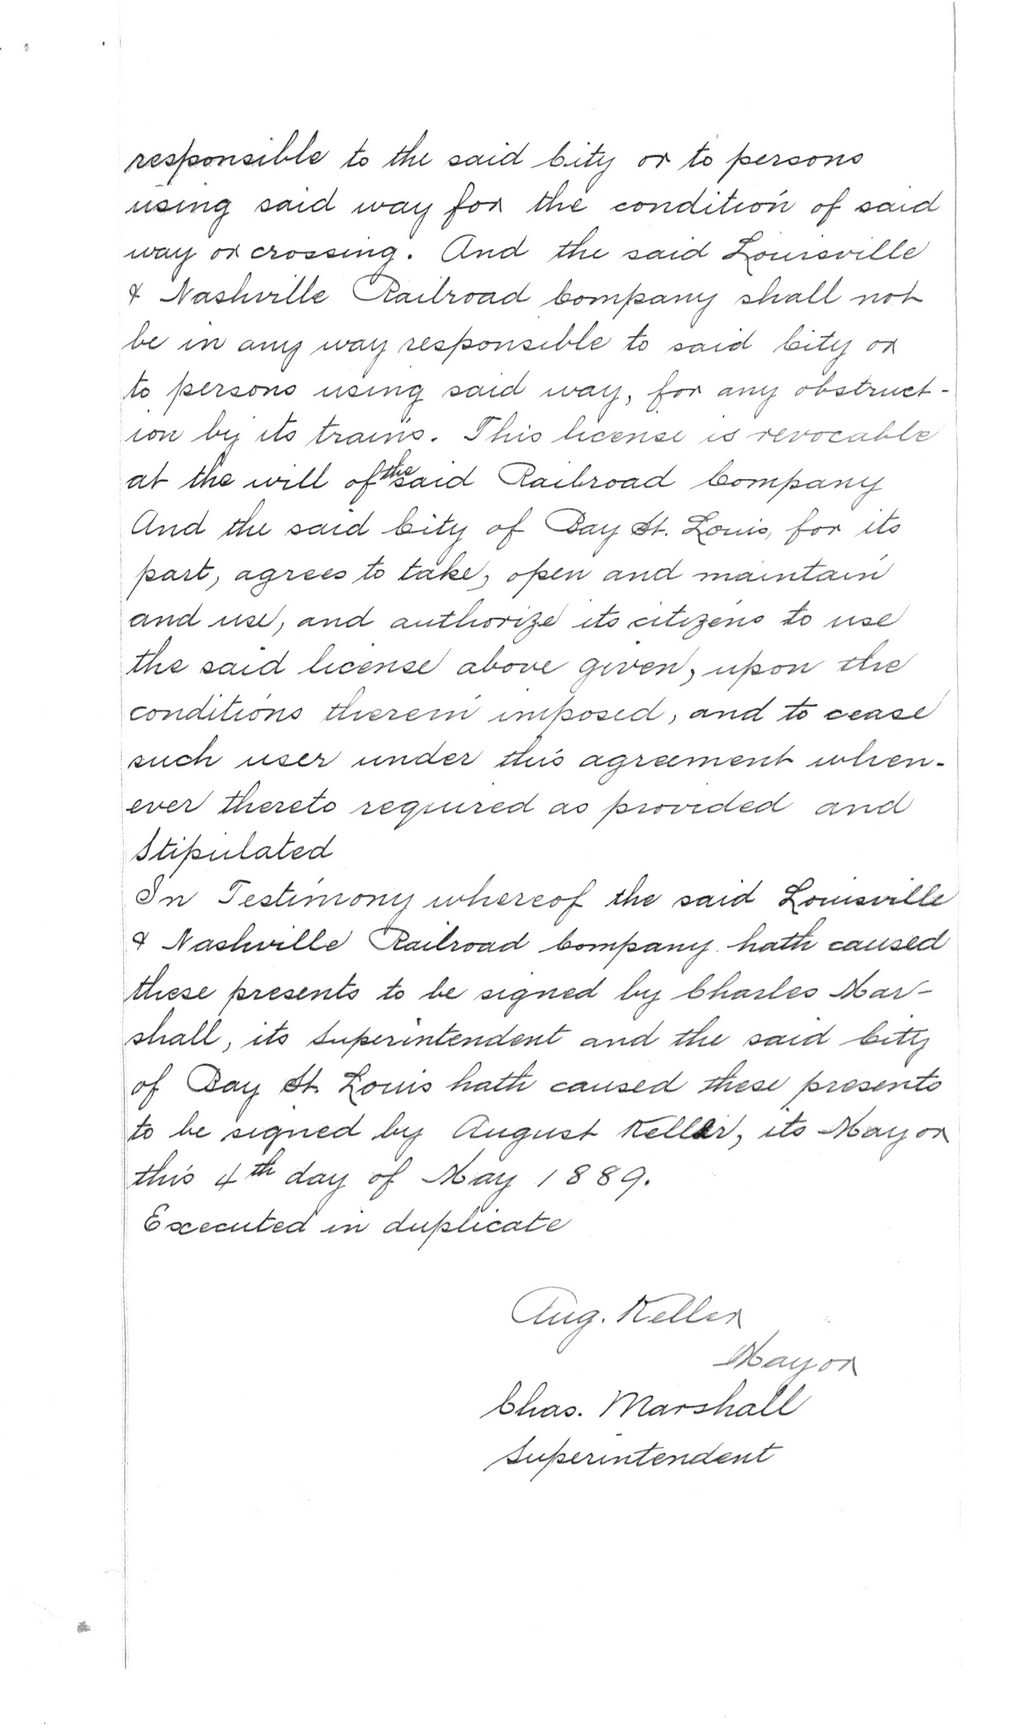 responsible to the said City or to persons
using said way for the condition of said
way or crossing. And the said Louisville
& Nashville Railroad Company shall not
be in any way responsible to said City or
to persons using said way, for any obstruct-
ion by its trains. This license is revocable
at the will of the said Railroad Company
And the said City of Bay St. Louis, for its
part, agrees to take, open and maintain
and use, and authorize its citizens to use
the said license above given, upon the
conditions therein imposed, and to cease
such user under this agreement when-
ever thereto required as provided and
Stipulated
In Testimony whereof the said Louisville
& Nashville Railroad Company hath caused
these presents to be signed by Charles Mar-
shall, its Superintendent and the said City
of Bay St. Louis hath caused these presents
to be signed by August Keller, its Mayor
this 4th day of May 1889.
Executed in duplicate
Aug. Keller
Mayor
Chas. Marshall
Superintendent